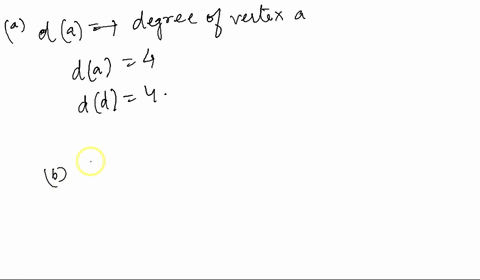 (a) d(a) → degree of vertex a
d(a) = 4
d(d) = 4.
(b)